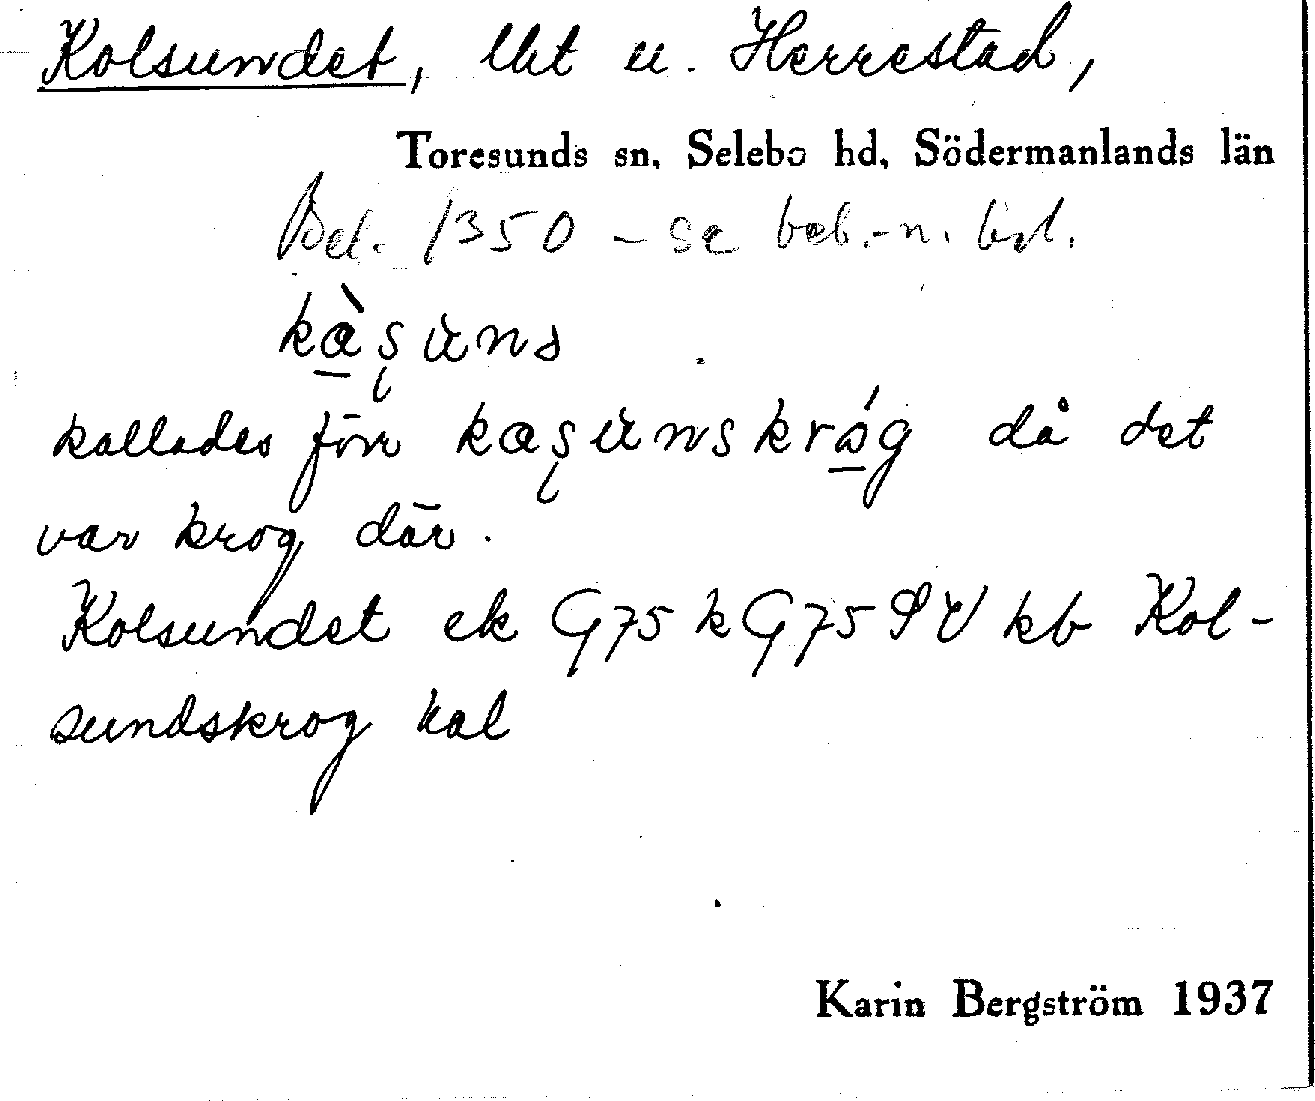 Kolsundet, lht u. Herrestad,
Toresunds sn, Selebo hd, Södermanlands län
Bel. 1350 – se beb.-n.
kàşuns
kallades förr kaşunskróg då det
var krog där.
Kolsundet ek G75 k G75 kb Kol-
sundskrog hal
Karin Bergström 1937